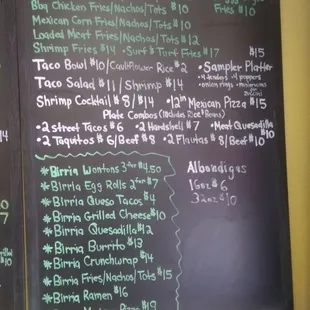 Bbq Chicken Fries/Nachos/Tots $10
Fries $10
Mexican Corn Fries/Nachos/Tots $10
Loaded Meat Fries/Nachos/Tots $12
Shrimp Fries $14 • Surf & Turf Fries $17
Taco Bowl $10/Cauliflower Rice $2
• Sampler Platter $15
• 4 tenders • 4 poppers
• onion rings • mini tacos
Taco Salad $11/Shrimp $14
Shrimp Cocktail $8/$14
• 12in Mexican Pizza $15
Plate Combos (includes Rice & Beans)
• 2 Street Tacos $6 • 2 Hardshell $7 • Meat Quesadilla $10
• 2 Taquitos $6/Beef $8 • 2 Flautas $8/Beef $10
• Birria Wontons 3 for $4.50
• Birria Egg Rolls 2 for $7
• Birria Queso Tacos $4
• Birria Grilled Cheese $10
• Birria Quesadilla $12
• Birria Burrito $13
• Birria Crunchwrap $14
• Birria Fries/Nachos/Tots $15
• Birria Ramen $16
Pizza $19
Albondigas
16oz $6
32oz $10